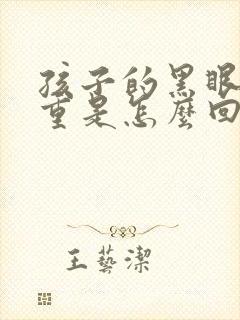 孩子的黑眼
重是怎麼回
王藝潔